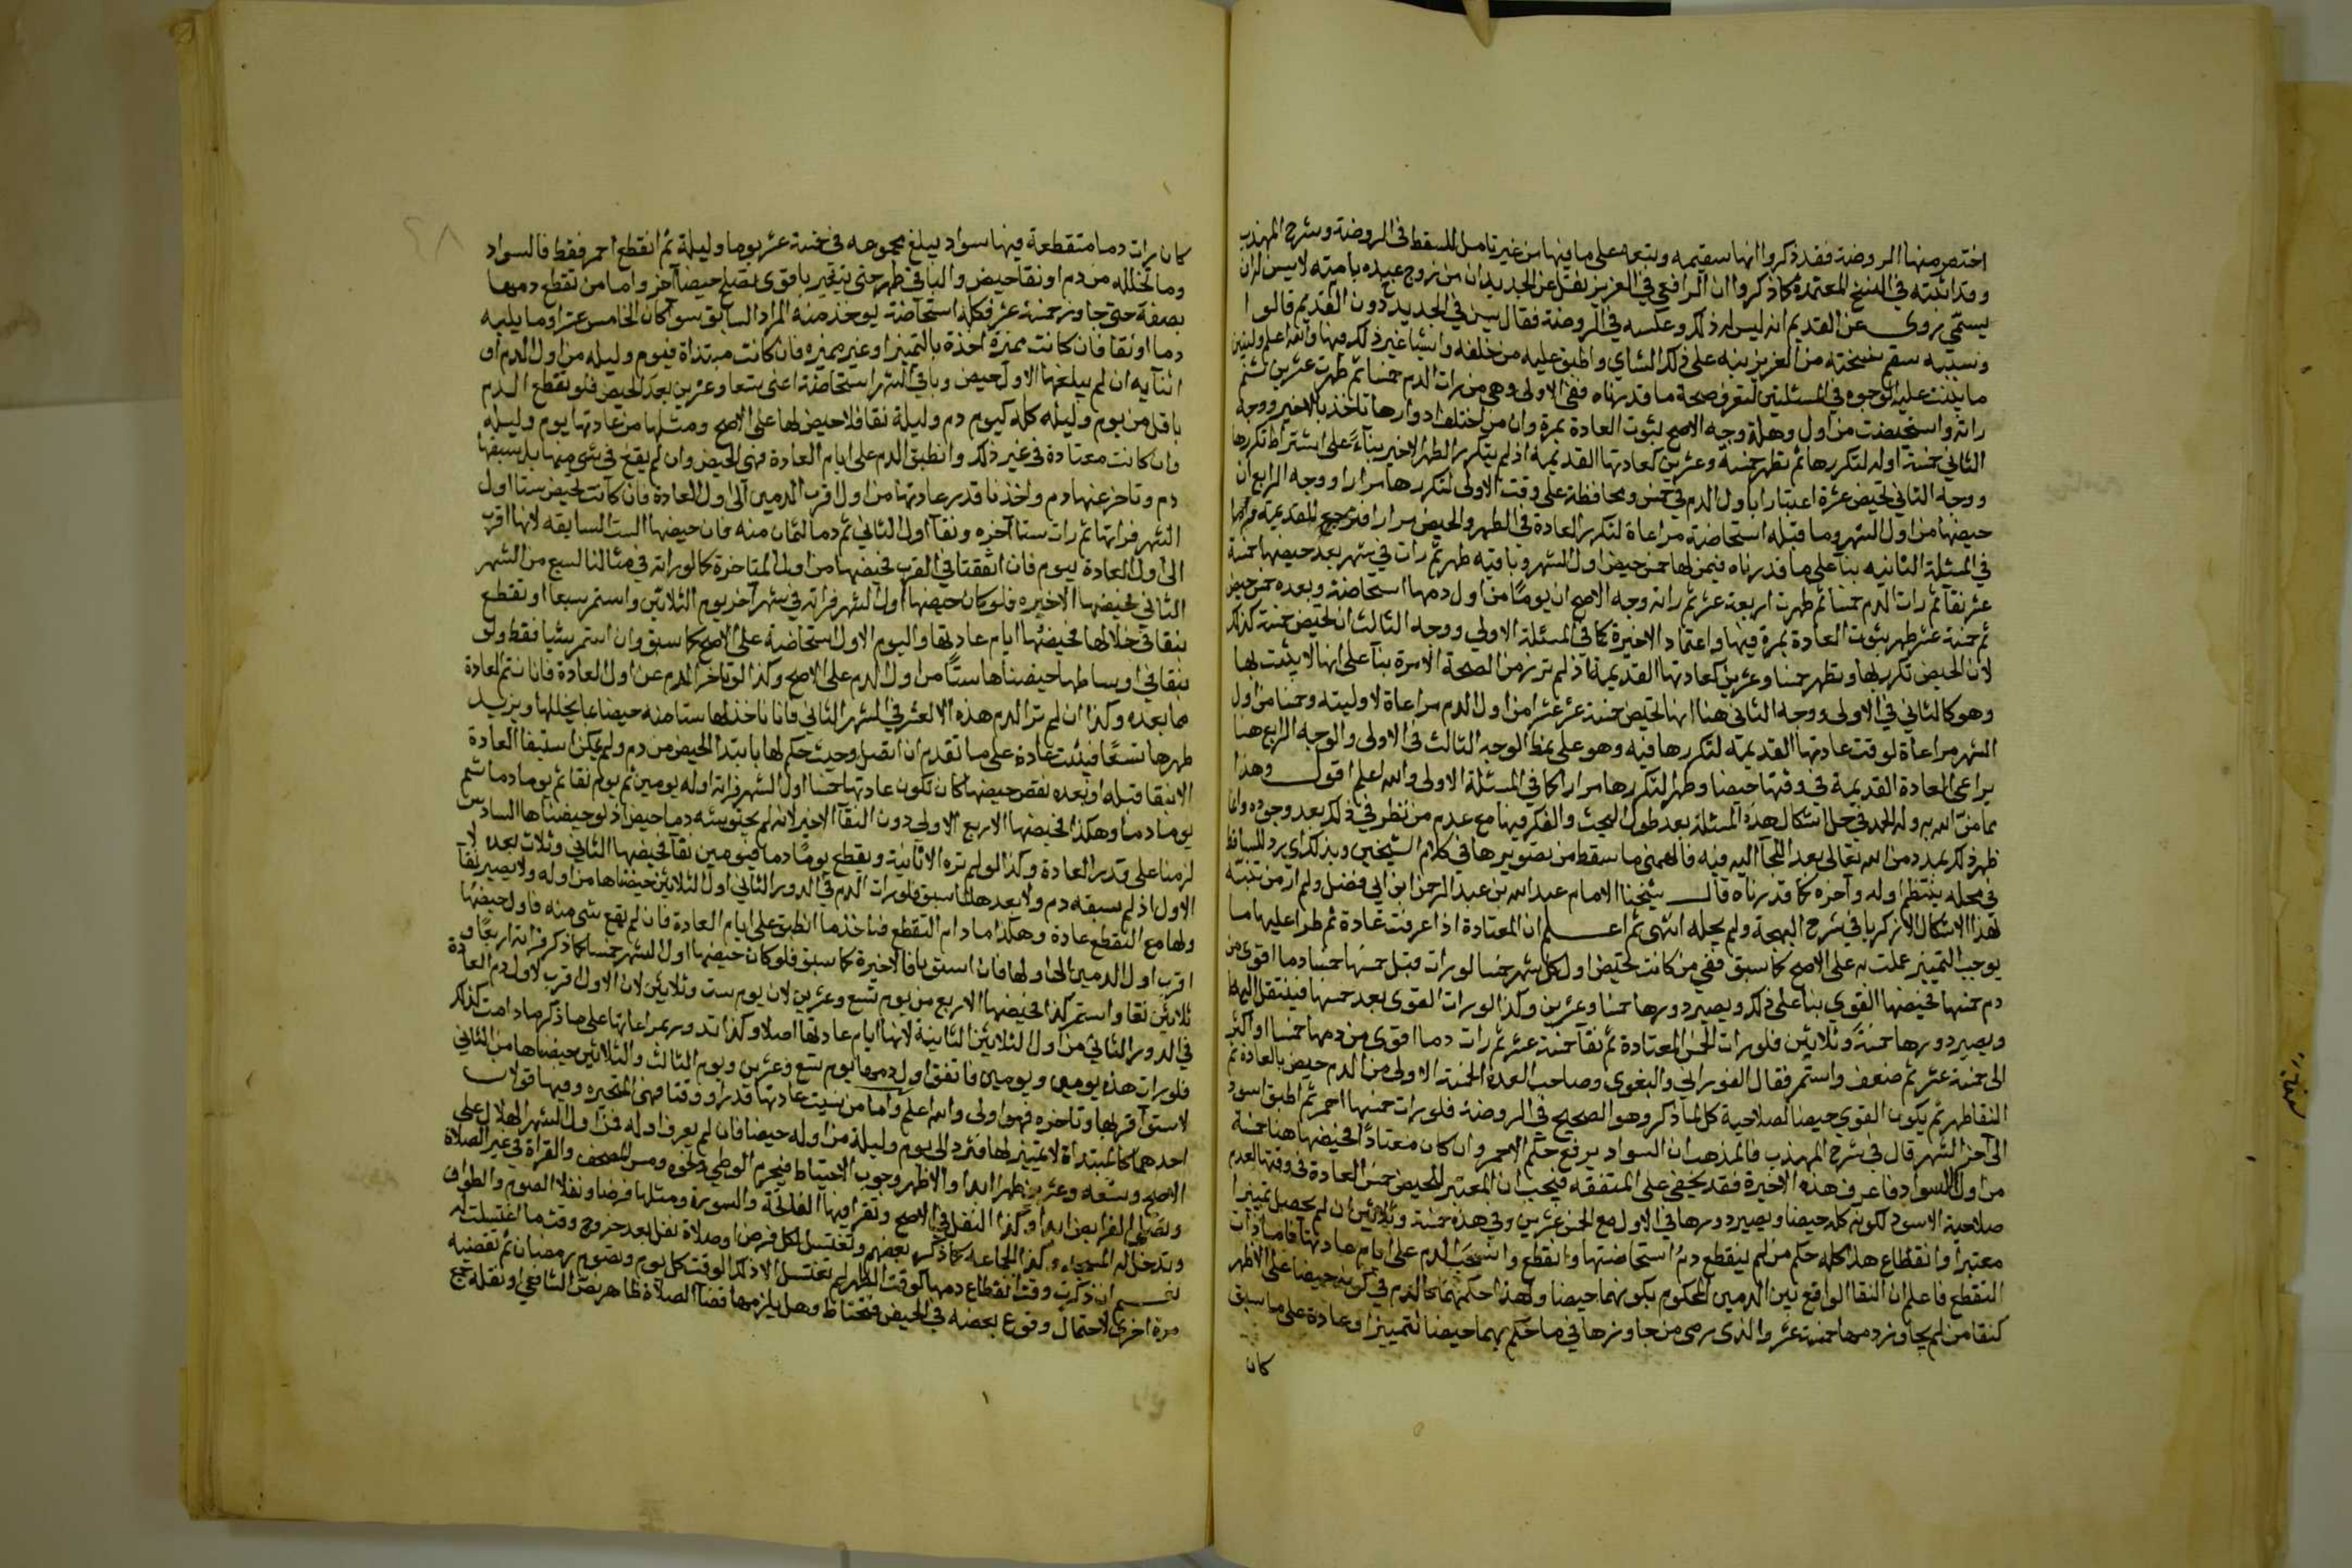 اختصر منها الروضة فقد ذكروا انها سقيمه وتبعه على ما فيها من غير تامل للسقط في الروضة وشرح المهذب
وقد اثبته في النسخ المعتمدة كما ذكروا ان الرافعي في العزيز نقل عن الجديد ان من زوج عبده بامته لا يسن له ان
يسمي وروى عن القديم انه ليس له ذكر وعكسه في الروضة فقال يسن في الجديد دون القديم قالوا
وسببه سقم نسخته من العزيز نبه على ذلك النشاي واطبق عليه من خلفه واشيا غير ذلك فيها والله اعلم
ما بينت عليه الوجوه في المسئلتين لتعرف صحة ما قدرناه ففي الاولى وهي من رات الدم خمسا ثم طهرت عشرين ثم
راته واستحيضت من اول وهلة وجه الاصح ثبوت العادة بمرة وان من اختلف ادوارها تاخذ بالاخير ووجه
الثاني خمسة اوله لتكررها ثم تطهر خمسة وعشرين كعادتها القديمة اذ لم يتكرر الطهر الاخير بناءً على اشتراط تكررها
ووجه الثاني تحيض عشرة اعتبارا باول الدم في خمس ومحافظة على وقت الاولى لتكررها مرارا ووجه الرابع ان
حيضها من اول الشهر وما قبله استحاضة مراعاة لتكرر العادة في الطهر والحيض مرارا فترجح القديمة
في المسئلة الثانيه بنا على ما قدرناه فيمن لها خمس حيض اول الشهر وباقيه طهر ثم رات في شهر بعد حيضها خمسة
عشر نقا ثم رات الدم خمسا ثم طهرت اربعة عشر ثم راته وجه الاصح ان يومًا من اول دمها استحاضة وبعده خمس حيض
ثم خمسة عشر طهر بثبوت العادة بمرة فيها واعتماد الاخيرة كما في المسئلة الاولى ووجه الثالث ان تحيض خمسة كذلك
لان الحيض تكرر لها وتطهر خمسا وعشرين كعادتها القديمة اذ لم تر زمن الصحة الا مرة بنا على انها لا يثبت بها
وهو كالثاني في الاولى ووجه الثاني هنا انها تحيض خمسة عشر عشرا من اول الدم مراعاة لاوليته وخمسا من اول
الشهر مراعاة لوقت عادتها القديمة لتكررها فيه وهو على نمط الوجه الثالث في الاولى والوجه الرابع هنا
يراعى العادة القديمة في وقتها حيضا وطهرا لتكررها مرارا كما في المسئلة الاولى والله اعلم اقول وهذا
مما من الله به وله الحمد في حل اشكال هذه المسئلة بعد طول البحث والفكر فيها مع عدم من نظر في ذلك بعد وجوده
ظهر ذلك بمدد من الله تعالى بعد اللجآ اليه فيه فالهمني ما سقط من تصويرها في كلام الشيخين وبذلك يرد للساقط
في محله ينتظم اوله وآخره كما قدرناه قال شيخنا الامام عبد الله بن عبد الرحمن ابن ابي فضل ولم ار من تنبه
لهذا الاشكال الا زكريا في شرح البهجة ولم يحله انتهى ثم اعلم ان المعتادة اذا عرفت عادة ثم طرا عليها ما
يوجب التمييز عملت به على الاصح كما سبق ففي من كانت تحيض اول كل شهر خمسا لو رات قبل خمسها خمسا دما اقوى من
دم خمسها تحيضها القوي بنا على ذلك ويصير دورها خمسا وعشرين وكذا لو رات القوي بعد خمسها فينتقل اليها
ويصير دورها خمسةً وثلاثين فلو رات الخمس المعتادة ثم نقآ خمسة عشر ثم رات دما اقوى من دمها خمسا او اكثر
الى خمسة عشر ثم ضعف واستمر فقال الفوراني والبغوي وصاحب العدة الخمسة الاولى من الدم حيض بالعادة ثم
النقا طهر ثم يكون القوي حيضا لصلاحية كل لما ذكر وهو الصحيح في الروضة فلو رات خمسها احمر ثم اطبق اسود
الى آخر الشهر قال في شرح المهذب فالمذهب ان السواد يرفع حكم الاحمر وان كان معتادًا فحيضها هنا خمسة
من اول السواد فاعرف هذه الاخيرة فقد يخفي على المتفقه فيحسب ان المعتبر للحيض خمس العادة في وقتها لعدم
صلاحية الاسود لكونه كله حيضا ويصير دورها في الاول مع الخمس عشرين وفي هذه خمسة وثلاثين ان لم يحصل تمييزا
معتبرا وانقطاع هذا كله حكم من لم ينقطع دم استحاضتها وانقطع وانسحب الدم على ايام عادتها فاما ذات
التقطع فاعلم ان النقا الواقع بين الدمين المحكوم بكونهما حيضا ولهذا حكمهما كالدم في كونه حيضا على الاظهر
كنقا من لم يجاوز دمها خمسة عشر والذي يرمى من جاوزها في ما حكم بهما حيضا لتمييز او عادة على ما سبق
كان
كان رات دما متقطعة فيها سواد يبلغ مجموعه في خمسة عشر يوما وليلة ثم انقطع احمر فقط فالسواد
وما تخلله من دم او نقا حيض والباقي طهر حتى يتغير باقوى يصلح حيضا آخر واما من تقطع دمها
بصفة حتى جاوز خمسة عشر فكله استحاضة يوخذ منه المراد السابق سوا كان الخامس عشر او ما يليه
دما او نقا فان كانت مميزة اخذة بالتمييز او غير مميزه فان كانت مبتداة فيوم وليله من اول الدم او
اثنايه ان لم يبلغها الاول حيض وباقي الشهر استحاضة اعني تسعا وعشرين بعد الحيض فلو تقطع الدم
باقل من يوم وليله كله كيوم دم وليلة نقا فلا حيض لها على الاصح ومثلها من عادتها يوم وليله
وان كانت معتادة في غير ذلك وانطبق الدم على ايام العادة فهي الحيض وان لم يقع في شي منها بل سبقها
دم وتاخر عنها دم واخذنا قدر عادتها من اول اقرب الدمين الى اول العادة فان كانت تحيض ستا اول
الشهر فراتها ثم رات ستا آخره ونقآ اول الثاني ثم دما لثمان منه فان حيضها الست السابقه لانها اقرب
الى اول العادة بيوم فان اتفقتا في القرب فحيضها من اول المتاخرة كما لو راته في مثالنا لسبع من الشهر
الثاني فحيضها الاخيره فلو كان حيضها اول الشهر فراته في شهر آخر يوم الثلاثين واستمر سبعا او تقطع
بنقا في خلالها فحيضها ايام عادتها واليوم الاول استحاضة على الاصح كما سبق وان استمر ستا فقط ولو
بنقا في اوساطها حيضناها ستًا من اول الدم على الاصح وكذا لو تاخر الدم عن اول العادة فانا نتم العادة
مما بعده وكذا ان لم تر الدم هذه الا لعشر في الشهر الثاني فانا ناخذ لها ستا منه حيضا بما يخللها ويزيد
طهرها تسعًا فيثبت عادة على ما تقدم ان اتصل وحيث حكم لها بابتدا الحيض من دم ولم يمكن استيفا العادة
الا بنقا قبله او بعده نقص حيضها كان تكون عادتها خمسا اول الشهر فراته اوله يومين ثم يوم نقا ثم يوما دما ثم
يوما دما وهكذا فحيضها الاربع الاولى دون النقآ الاخير لانه لم يحتوشه دما حيض اذ لو حيضناها السادس
لزدنا على قدر العادة وكذا لو لم تره الا ثانية وتقطع يومًا دما فيومين نقا فحيضها الثاني وثلاث بعده لا
الاول اذ لم يسبقه دم ولا بعدها لما سبق فلو رات الدم في الدور الثاني اول الثلاثين حيضناها من اوله ولا يصير نقآ
ولها مع التقطع عادة وهكذا ما دام التقطع فناخذ ما انطبق على ايام العادة فان لم يقع شي منه فاول حيضها
اقرب اول الدمين الى اولها فان استويا فالاخيرة كما سبق فلو كان حيضها اول الشهر خمسا كما ذكر فراته اربعًا و
ثلاثين نقا واستمر كذا فحيضها الاربع من يوم تسع وعشرين لان يوم ست وثلاثين لان الاول اقرب لاول دم العادة
في الدور الثاني من اول الثلاثين الثانية لانها ايام عادتها اصلا وكذا تدور بمراعاتها على ما ذكر ما دامت كذلك
فلو رات هذه يومين ويومين فاتفق اول دمها يوم تسع وعشرين ويوم الثالث والثلاثين حيضناها من الثاني
لاستوآ قربها وتاخره فهو اولى والله اعلم واما من نسيت عادتها قدرا ووقتا فهي المتحيره وفيها قولان
احدهما كالمبتداة لا تمييز لها فترد الى يوم وليلة من اوله حيضا فان لم يعرف اوله فمن اول الشهر الهلالي على
الاصح وتسعه وعشرين طهر ابدا والاظهر وجوب الاحتياط فيحرم الوطي ونحوه ومس المصحف والقراة في غير الصلاة
وتصلي الفرايض ابدا وكذا النفل في الاصح وتقرا فيها الفاتحة والسورة ومثلها فرضا ونفلا الصوم والطواف
وتدخل له المسجد وكذا الجماعه كما ذكره بعضهم وتغتسل لكل فرض او صلاة نفل بعد خروج وقت ما اغتسلت له
نعم ان ذكرت وقت انقطاع دمها كوقت الظهر لم تغتسل الا ذلك الوقت كل يوم وتصوم رمضان ثم تقضيه
مرة اخرى لاحتمال وقوع بعضه في الحيض فتحتاط وهل يلزمها قضآ الصلاة ظاهر نص الشافعي